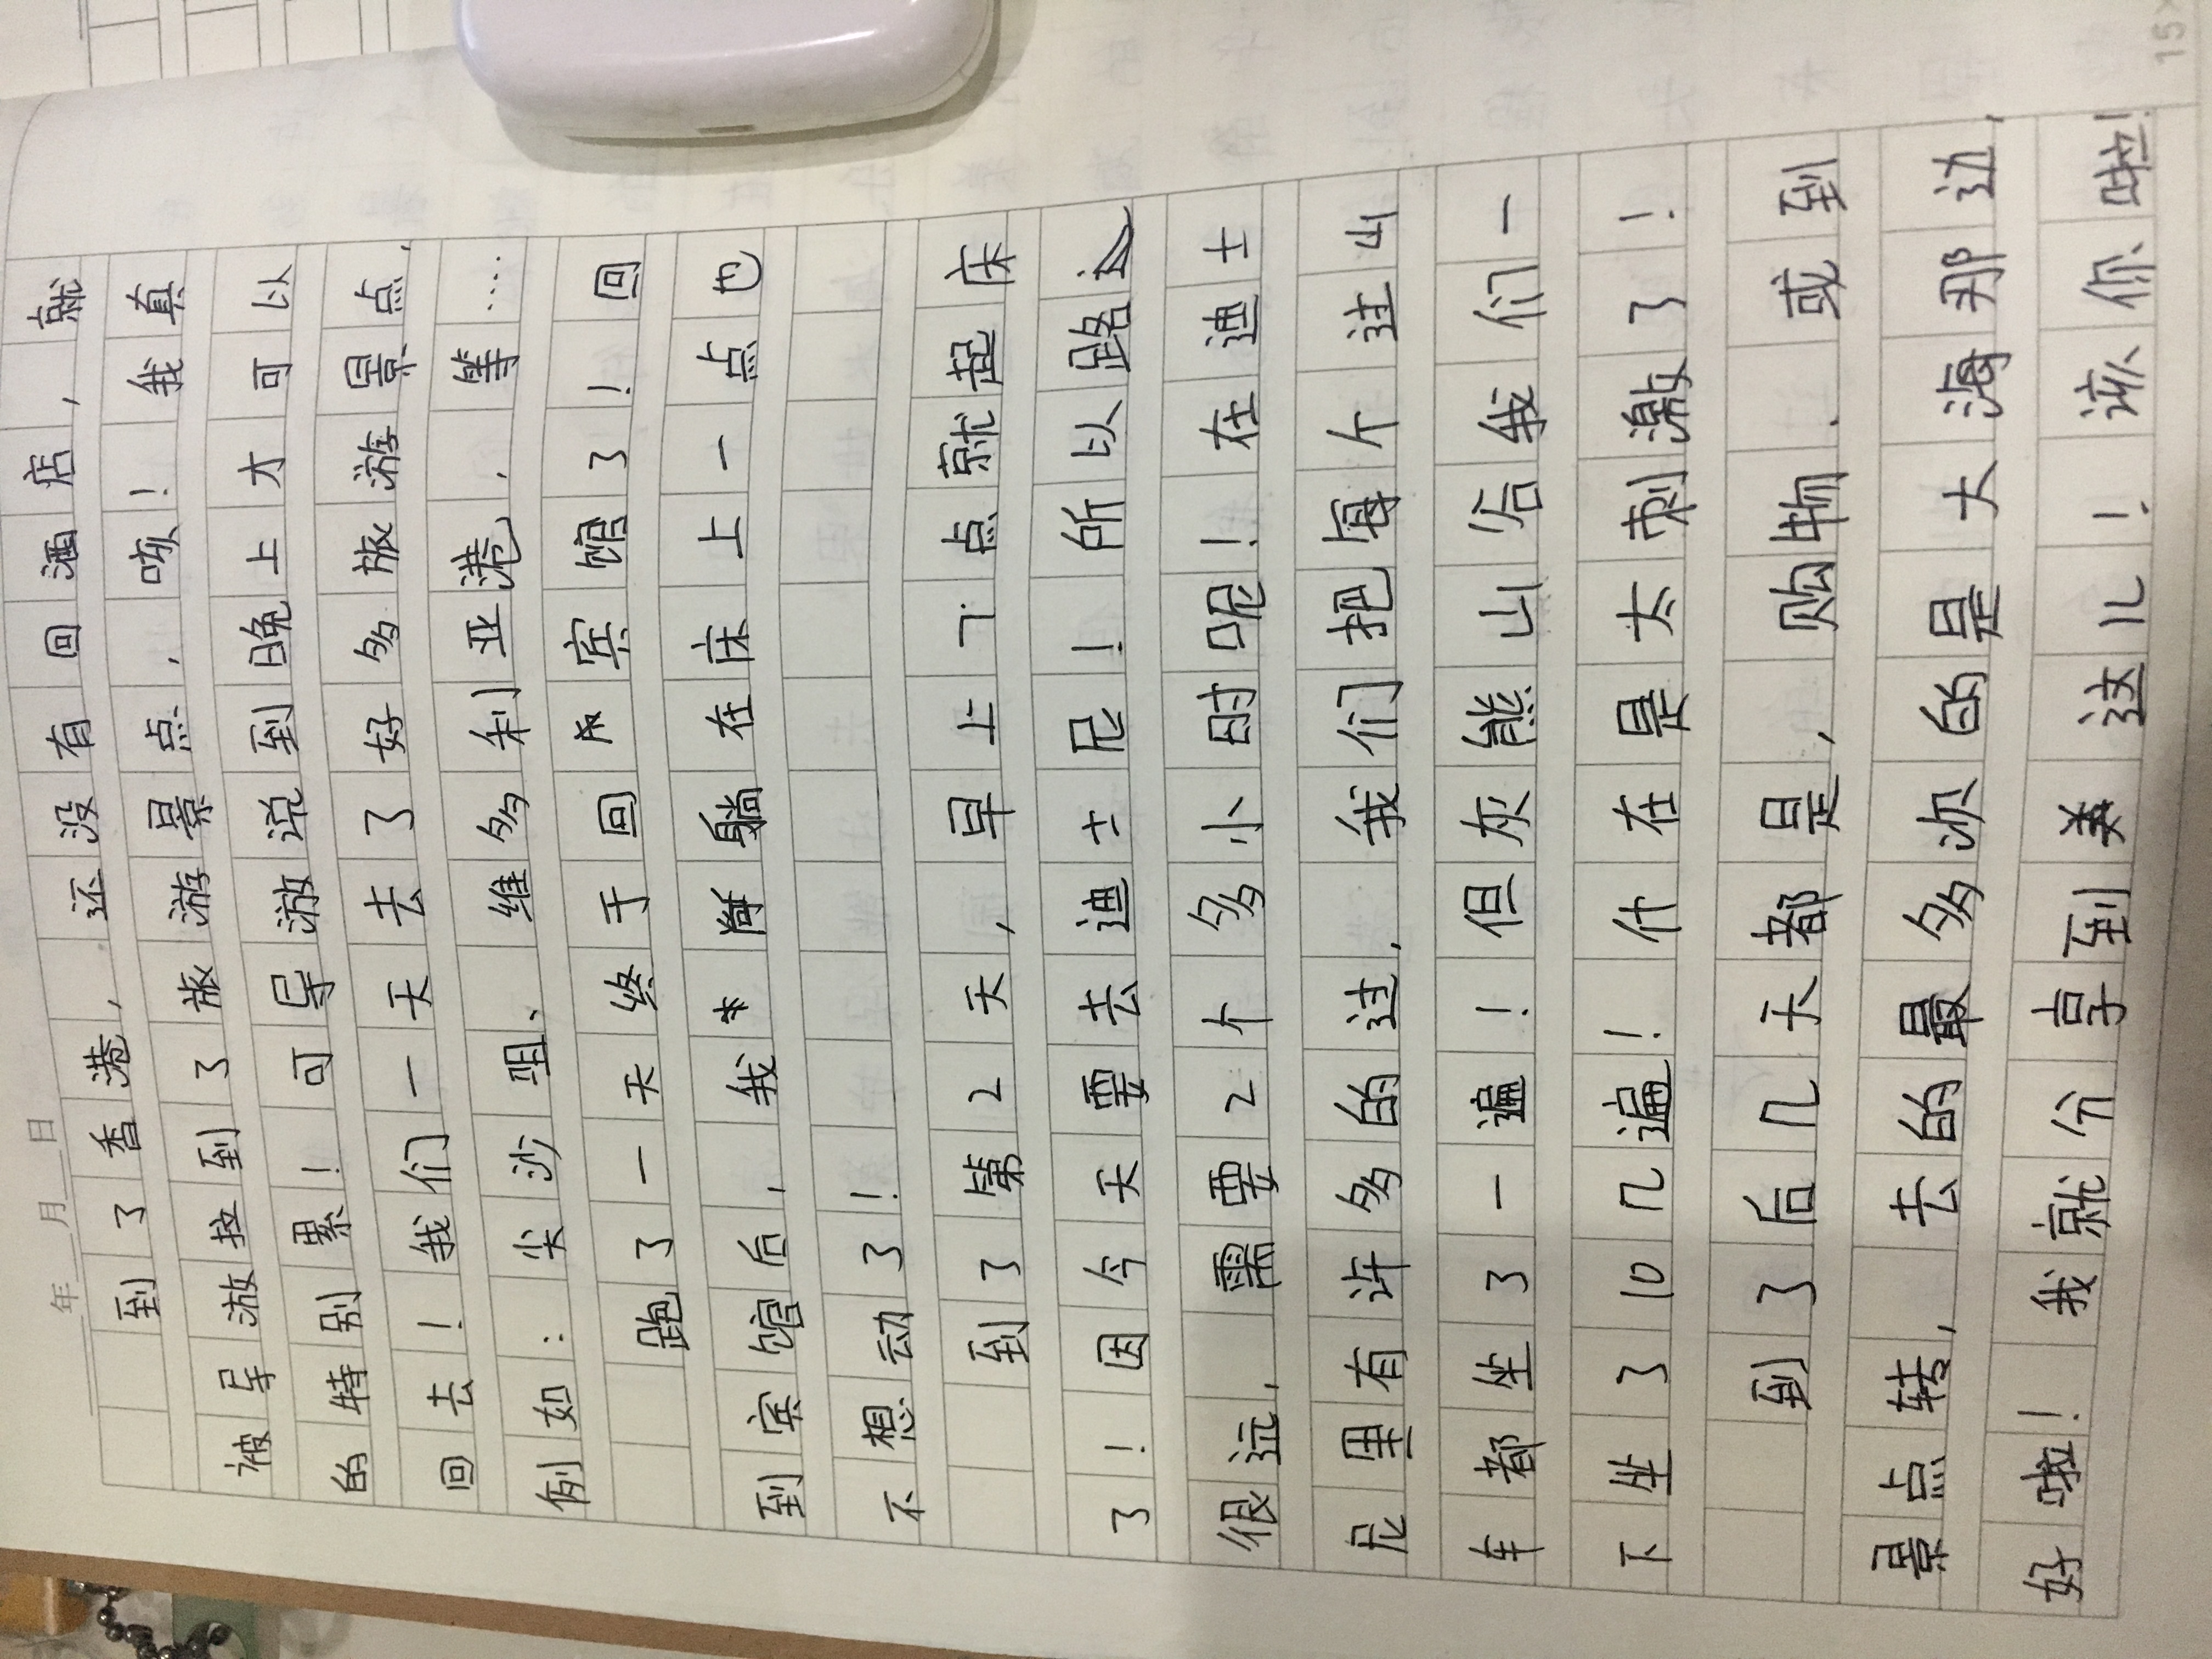 年 月 日
到了香港，还没有回酒店，就
被导游拉到了旅游景点，咳！我真
的特别累！可导游说到晚上才可以
回去！我们一天去了好多旅游景点，
例如：尖沙咀、维多利亚港、等……
跑了一天终于回宾馆了！回
到宾馆后，我躺在床上一点也
不想动了！
到了第2天，早上7点就起床
了！因今天要去迪士尼！所以路
很远，需要2个多小时呢！在迪士
尼里有许多的过，我们把每个过山
车都坐了一遍！但灰熊山谷我们一
下坐了10几遍！什在是太刺激了！
到了后几天都是，购物、或到
景点转，去的最多次的是大海那边，
好啦！我就分享到这儿！该你啦！
15×